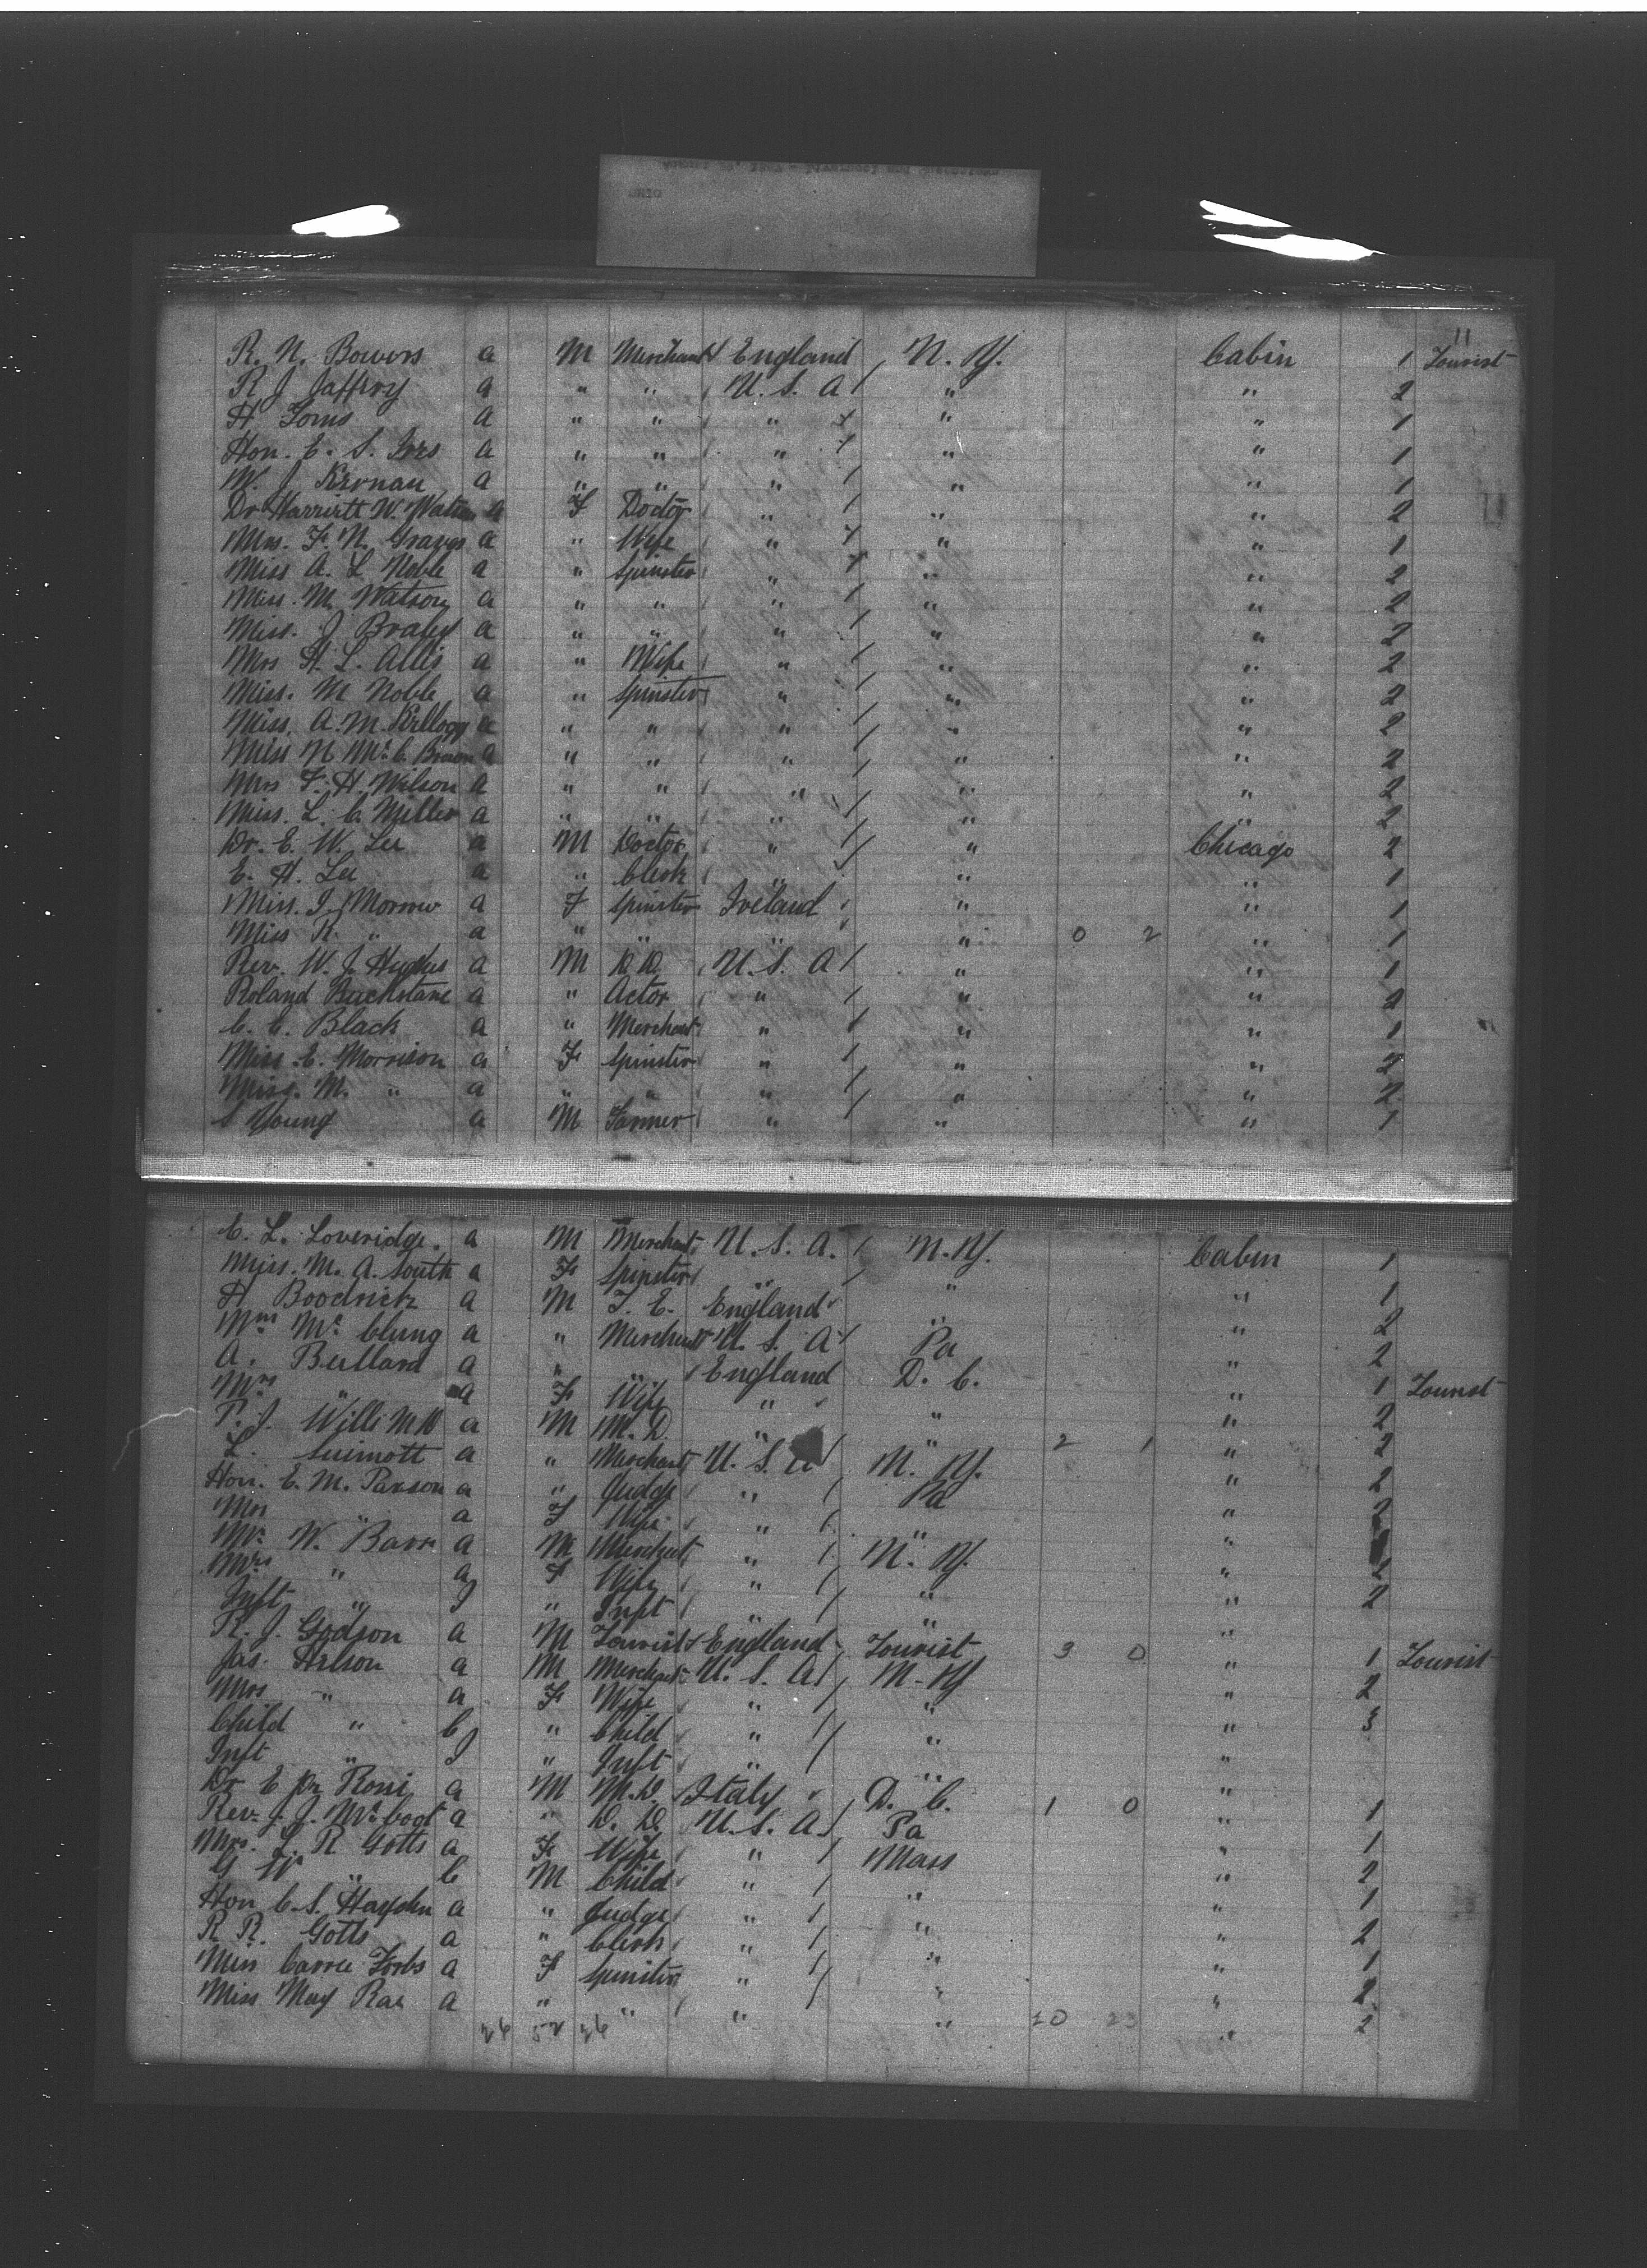 11
R. N. Bowers a M Merchant England N. Y. Cabin 1 Tourist
R J Jaffroy a " " U. S. A " " 2
H a " " " " " 1
Hon. E. S. a " " " " " 1
W. J. Kernan a " " " " " 1
Dr Harriett W. Watson a F Doctor " " " 2
Mrs. F. N. Graves a " Wife " " " 1
Miss A. L Noble a " Spinster " " " 2
Miss. M. Watson a " " " " " 2
Miss. J a " " " " " 2
Mrs H. L. Allis a " Wife " " " 2
Miss. M Noble a " Spinster " " " 2
Miss. A. M. Kellogg a " " " " " 2
Miss N Mc. C. Brown a " " " " " 2
Mrs F. H. Wilson a " " " " " 2
Miss. L. C. Miller a " " " " " 2
Dr. E. W. Lee a M Doctor " " Chicago 2
E. H. Lee a " Clerk " " " 1
Miss. J. Morrow a F Spinster Ireland " " 1
Miss R. " a " " " " 0 2 " 1
Rev. W. J. Hughes a M D.D. U. S. A " " 1
Roland a " Actor " " " 2
C. C. Black a " Merchant " " " 1
Miss. E. Morrison a F Spinster " " " 2
Miss. M. " a " " " " " 2
S Young a M Farmer " " " 1
C. L. Loveridge. a M Merchant U. S. A. N. Y. Cabin 1
Miss. M. A. South a F Spinster " " " 1
H Boodrick a M T. E. England " " 2
Wm Mc. Clung a " Merchant U. S. A Pa " 2
A. Bullard a " " England D. C. " 1 Tourist
Mrs " a F Wife " " " 2
P. J. a M M. D. " " 2 1 " 2
L. a " Merchant U. S. A N. Y. " 2
Hon. E. M. Paxson a " Judge " Pa " 2
Mrs " a F Wife " " "
Mr. W. Barr a M Merchant " N. Y. " 2
Mrs " a F Wife " " " 2
Inft " I " Inft " " "
R. J. Godson a M Tourist England Tourist 3 0 " 1 Tourist
Jas. a M Merchant U. S. A N. Y " 2
Mrs " a F Wife " " " 3
Child " C " Child " " "
Inft " I " Inft " " "
Dr E a M M.D. Italy D. C. 1 0 " 1
Rev. J. J. Mc. a " D. D. U. S. A. Pa " 1
Mrs. L. R Gotts a F Wife " Mass " 2
G W " C M Child " " " 1
Hon C. S. Hayden a " Judge " " " 2
R R. Gotts a " Clerk " " " 1
Miss Carrie a F Spinster " " " 2
Miss May Rae a " " " " " 2
26 52 26 10 23